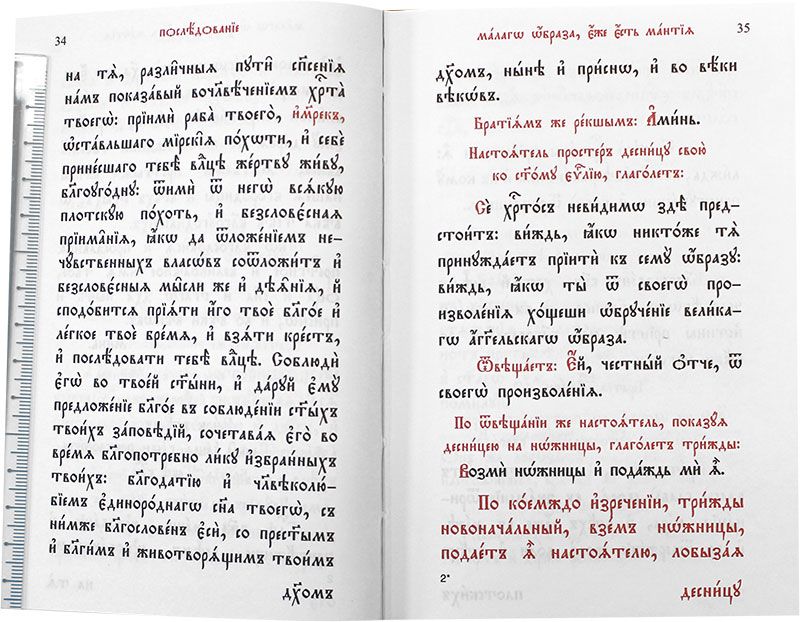 34
послѣ́дованїе
на тѧ̀, разли́чныѧ пути̑ сп҃се́нїѧ
на́мъ показа́вый вочл҃вѣ́ченїемъ хрⷭ҇та̀
твоегѡ̀: прїимѝ раба̀ твоего̀, и҆мⷬ҇екъ,
ѡ҆ста́вльшаго мїрскі̑ѧ по́хѡти, и҆ себѐ
прине́сшаго тебѣ̀ влⷣцѣ же́ртву жи́ву,
бл҃гоуго́дну: ѿимѝ ѿ негѡ̀ всѧ́кую
пло́тскую по́хоть, и҆ безслове́снаѧ
прїима̑нїѧ, ꙗ҆́кѡ да ѿложе́нїемъ не-
чу́вственныхъ власѡ́въ соѿложи́тъ и҆
безслове́сныѧ мы̑сли же и҆ дѣѧ̑нїѧ, и҆
сподо́битсѧ прїѧ́ти и҆́го твоѐ бл҃го́е и҆
ле́гкое твоѐ бре́мѧ, и҆ взѧ́ти кре́стъ,
и҆ послѣ́довати тебѣ̀ влⷣцѣ. Соблюдѝ
є҆го̀ во твое́й ст҃ы́ни, и҆ да́руй є҆мꙋ̀
предложе́нїе бл҃го́е въ соблюде́нїи ст҃ы́хъ
твои́хъ за́повѣдїй, сочетава́ѧ є҆го̀ во
вре́мѧ бл҃гопотре́бно ли́ку и҆збра́нныхъ
твои́хъ: благода́тїю и҆ чл҃вѣколю́-
бїемъ є҆диноро́днагѡ сн҃а твоегѡ̀, съ
ни́мже бл҃гослове́нъ є҆сѝ, со прест҃ы́мъ
и҆ бл҃ги́мъ и҆ животворѧ́щимъ твои́мъ
дх҃омъ
ма́лагѡ ѡ҆́браза, є҆́же є҆́сть ма́нтїѧ
35
дх҃омъ, ны́нѣ и҆ при́снѡ, и҆ во вѣ́ки
вѣкѡ́въ.
Бра́тїѧмъ же ре́кшымъ: А҆ми́нь.
Настоѧ́тель просте́ръ десни́цу свою̀
ко ст҃о́му є҆ѵⷢ҇лїю, глаго́летъ:
Сѐ хрⷭ҇то́съ неви́димѡ здѣ̀ пред-
стои́тъ: ви́ждь, ꙗ҆́кѡ никто́же тѧ̀
принужда́етъ прїитѝ къ сему̀ ѡ҆́бразу:
ви́ждь, ꙗ҆́кѡ ты̀ ѿ своегѡ̀ про-
изволе́нїѧ хо́щеши ѡ҆бруче́нїе вели́ка-
гѡ а҆́гг҃льскагѡ ѡ҆́браза.
Ѿвѣща́етъ: Є҆́й, че́стный ѻ҆́тче, ѿ
своегѡ̀ произволе́нїѧ.
По ѿвѣща́нїи же настоѧ́тель, показу́ѧ
десни́цею на но́жницы, глаго́летъ три́жды:
Возмѝ нѡ́жницы и҆ пода́ждь мѝ ѧ҆̀.
По кое́мждо и҆зрече́нїи, три́жды
новонача́льный, взе́мъ нѡ́жницы,
подае́тъ ѧ҆̀ настоѧ́телю, лобыза́ѧ
2*
десни́цу